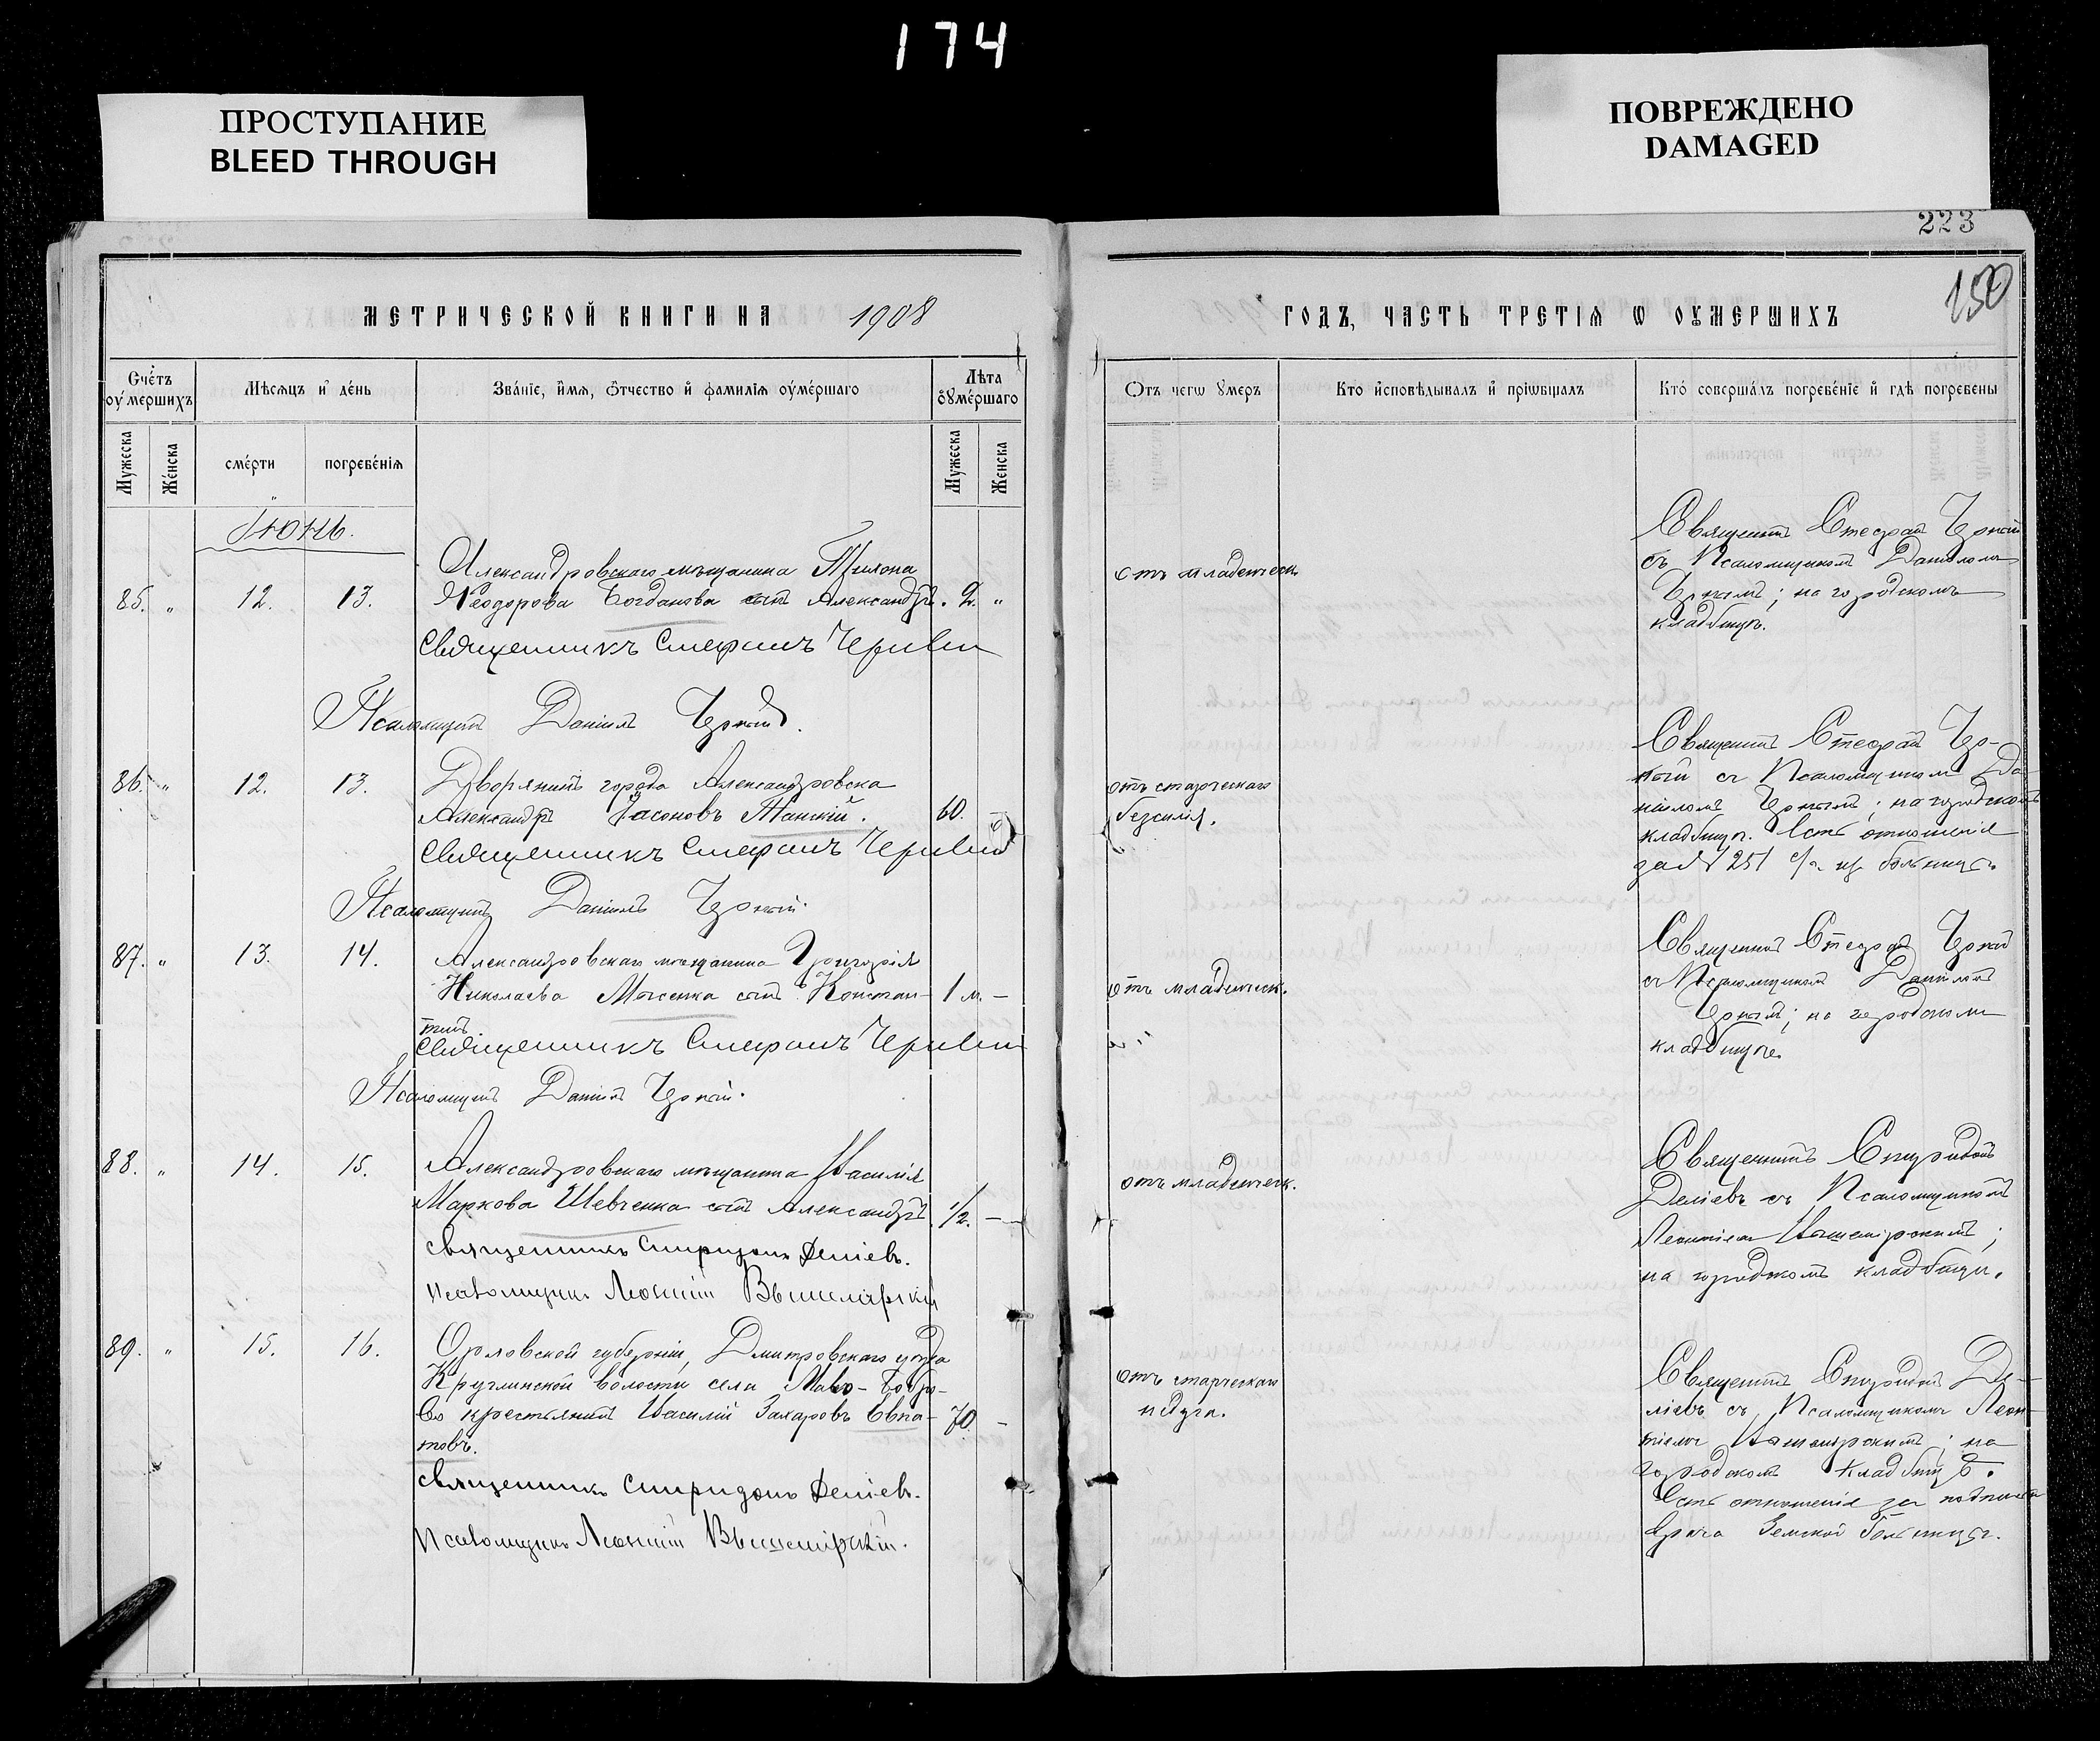 174
ПРОСТУПАНИЕ
BLEED THROUGH
ПОВРЕЖДЕНО
DAMAGED
223
150
МЕТРИЧЕСКОЙ КНИГИ НА 1908
Счетъ оумершихъ
Мѣсяцъ и день
Званіе, имя, отчество и фамилія оумершаго
Лѣта оумершаго
Мужеска
Женска
смерти
погребенія
Мужеска
Женска
Іюнь.
Александровскаго мѣщанина
85. " 12. 13. Ѳеодорова Богданова сынъ Александръ. 2. "
Священникъ Стефанъ Черный
Псаломщикъ Даніилъ Черный.
86. " 12. 13. Дворянинъ города Александровска
Александръ Іасоновъ 60.
Священникъ Стефанъ Черный
Псаломщикъ Даніилъ Черный.
87. " 13. 14. Александровскаго мѣщанина Григорія
Николаева сынъ Констан- 1 м. –
тинъ.
Священникъ Стефанъ Черный
Псаломщикъ Даніилъ Черный.
88. " 14. 15. Александровскаго мѣщанина Василія
Маркова Шевченка сынъ Александръ 1/2. –
Священникъ Спиридонъ Деліевъ.
Псаломщикъ Леонтій Вышемірскій
89. " 15. 16. Орловской губерніи, Дмитровскаго уѣзда
Круглинской волости села Мало-Бобро-
во крестьянинъ Василій Захаровъ Евпа- 70 –
товъ.
Священникъ Спиридонъ Деліевъ.
Псаломщикъ Леонтій Вышемірскій.
ГОДЪ, ЧАСТЬ ТРЕТІЯ Ѡ ОУМЕРШИХЪ
Отъ чегѡ умеръ
Кто исповѣдывалъ и пріѡбщалъ
Кто совершалъ погребеніе и гдѣ погребены
Священникъ Стефанъ Черный
отъ младенческ. съ Псаломщикомъ Даніиломъ
Чернымъ; на городскомъ
кладбищѣ.
Священникъ Стефанъ Чер-
отъ старческаго ный съ Псаломщикомъ Да-
безсилія. ніиломъ Чернымъ; на городскомъ
кладбищѣ. Есть отношеніе
за № 251 с/г. изъ больницы.
Священникъ Стефанъ Черный
отъ младенческ. съ Псаломщикомъ Даніиломъ
Чернымъ; на городскомъ
кладбищѣ.
Священникъ Спиридонъ
отъ младенческ. Деліевъ съ Псаломщикомъ
Леонтіемъ Вышемірскимъ;
на городскомъ кладбищѣ.
Священникъ Спиридонъ Де-
отъ старческаго ліевъ съ Псаломщикомъ Леон-
недуга. тіемъ Вышемірскимъ; на
городскомъ кладбищѣ.
Есть отношеніе за подписью
врача Земской больницы.